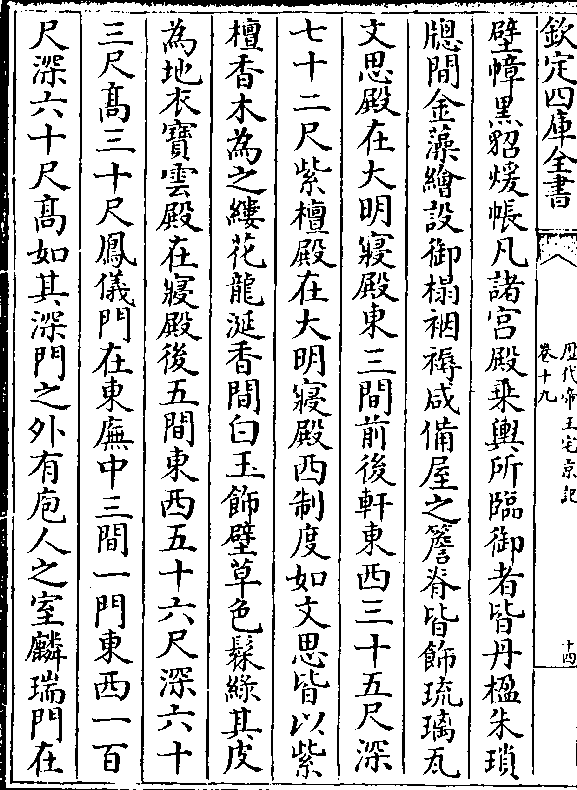 欽定四庫全書
歴代帝王宅京記
卷十九
十四
壁幛黒貂煖帳凡諸宮殿乗輿所臨御者皆丹楹朱瑣
牕間金藻繪設御榻裀褥咸備屋之簷脊皆飾琉璃瓦
文思殿在大明寢殿東三間前後軒東西三十五尺深
七十二尺紫檀殿在大明寢殿西制度如文思皆以紫
檀香木為之縷花龍涎香間白玉飾壁草色髹綠其皮
為地衣寶雲殿在寢殿後五間東西五十六尺深六十
三尺髙三十尺鳳儀門在東廡中三間一門東西一百
尺深六十尺髙如其深門之外有庖人之室麟瑞門在